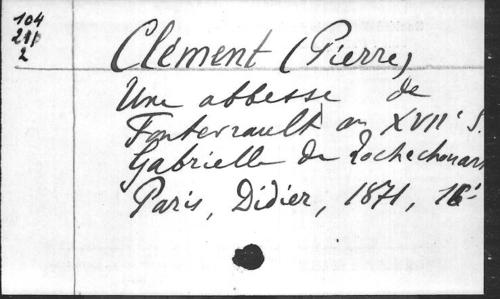 104
211
2
Clément (Pierre)
Une abbesse de
Fontevrault au XVIIe S.
Gabrielle de Rochechouart
Paris, Didier, 1871, 16°